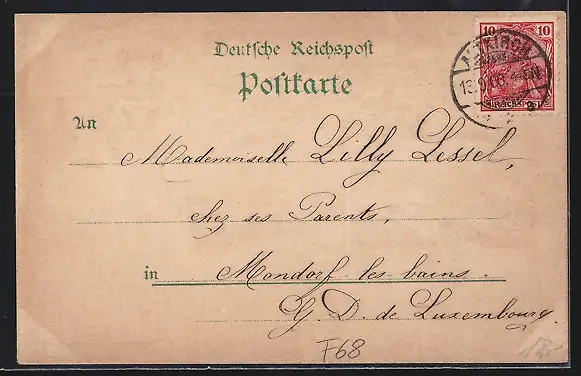 Deutsche Reichspost
Postkarte
10 10
An
Mademoiselle Lilly Lessel,
chez ses Parents,
in Mondorf-les-bains.
G. D. de Luxembourg.
F68